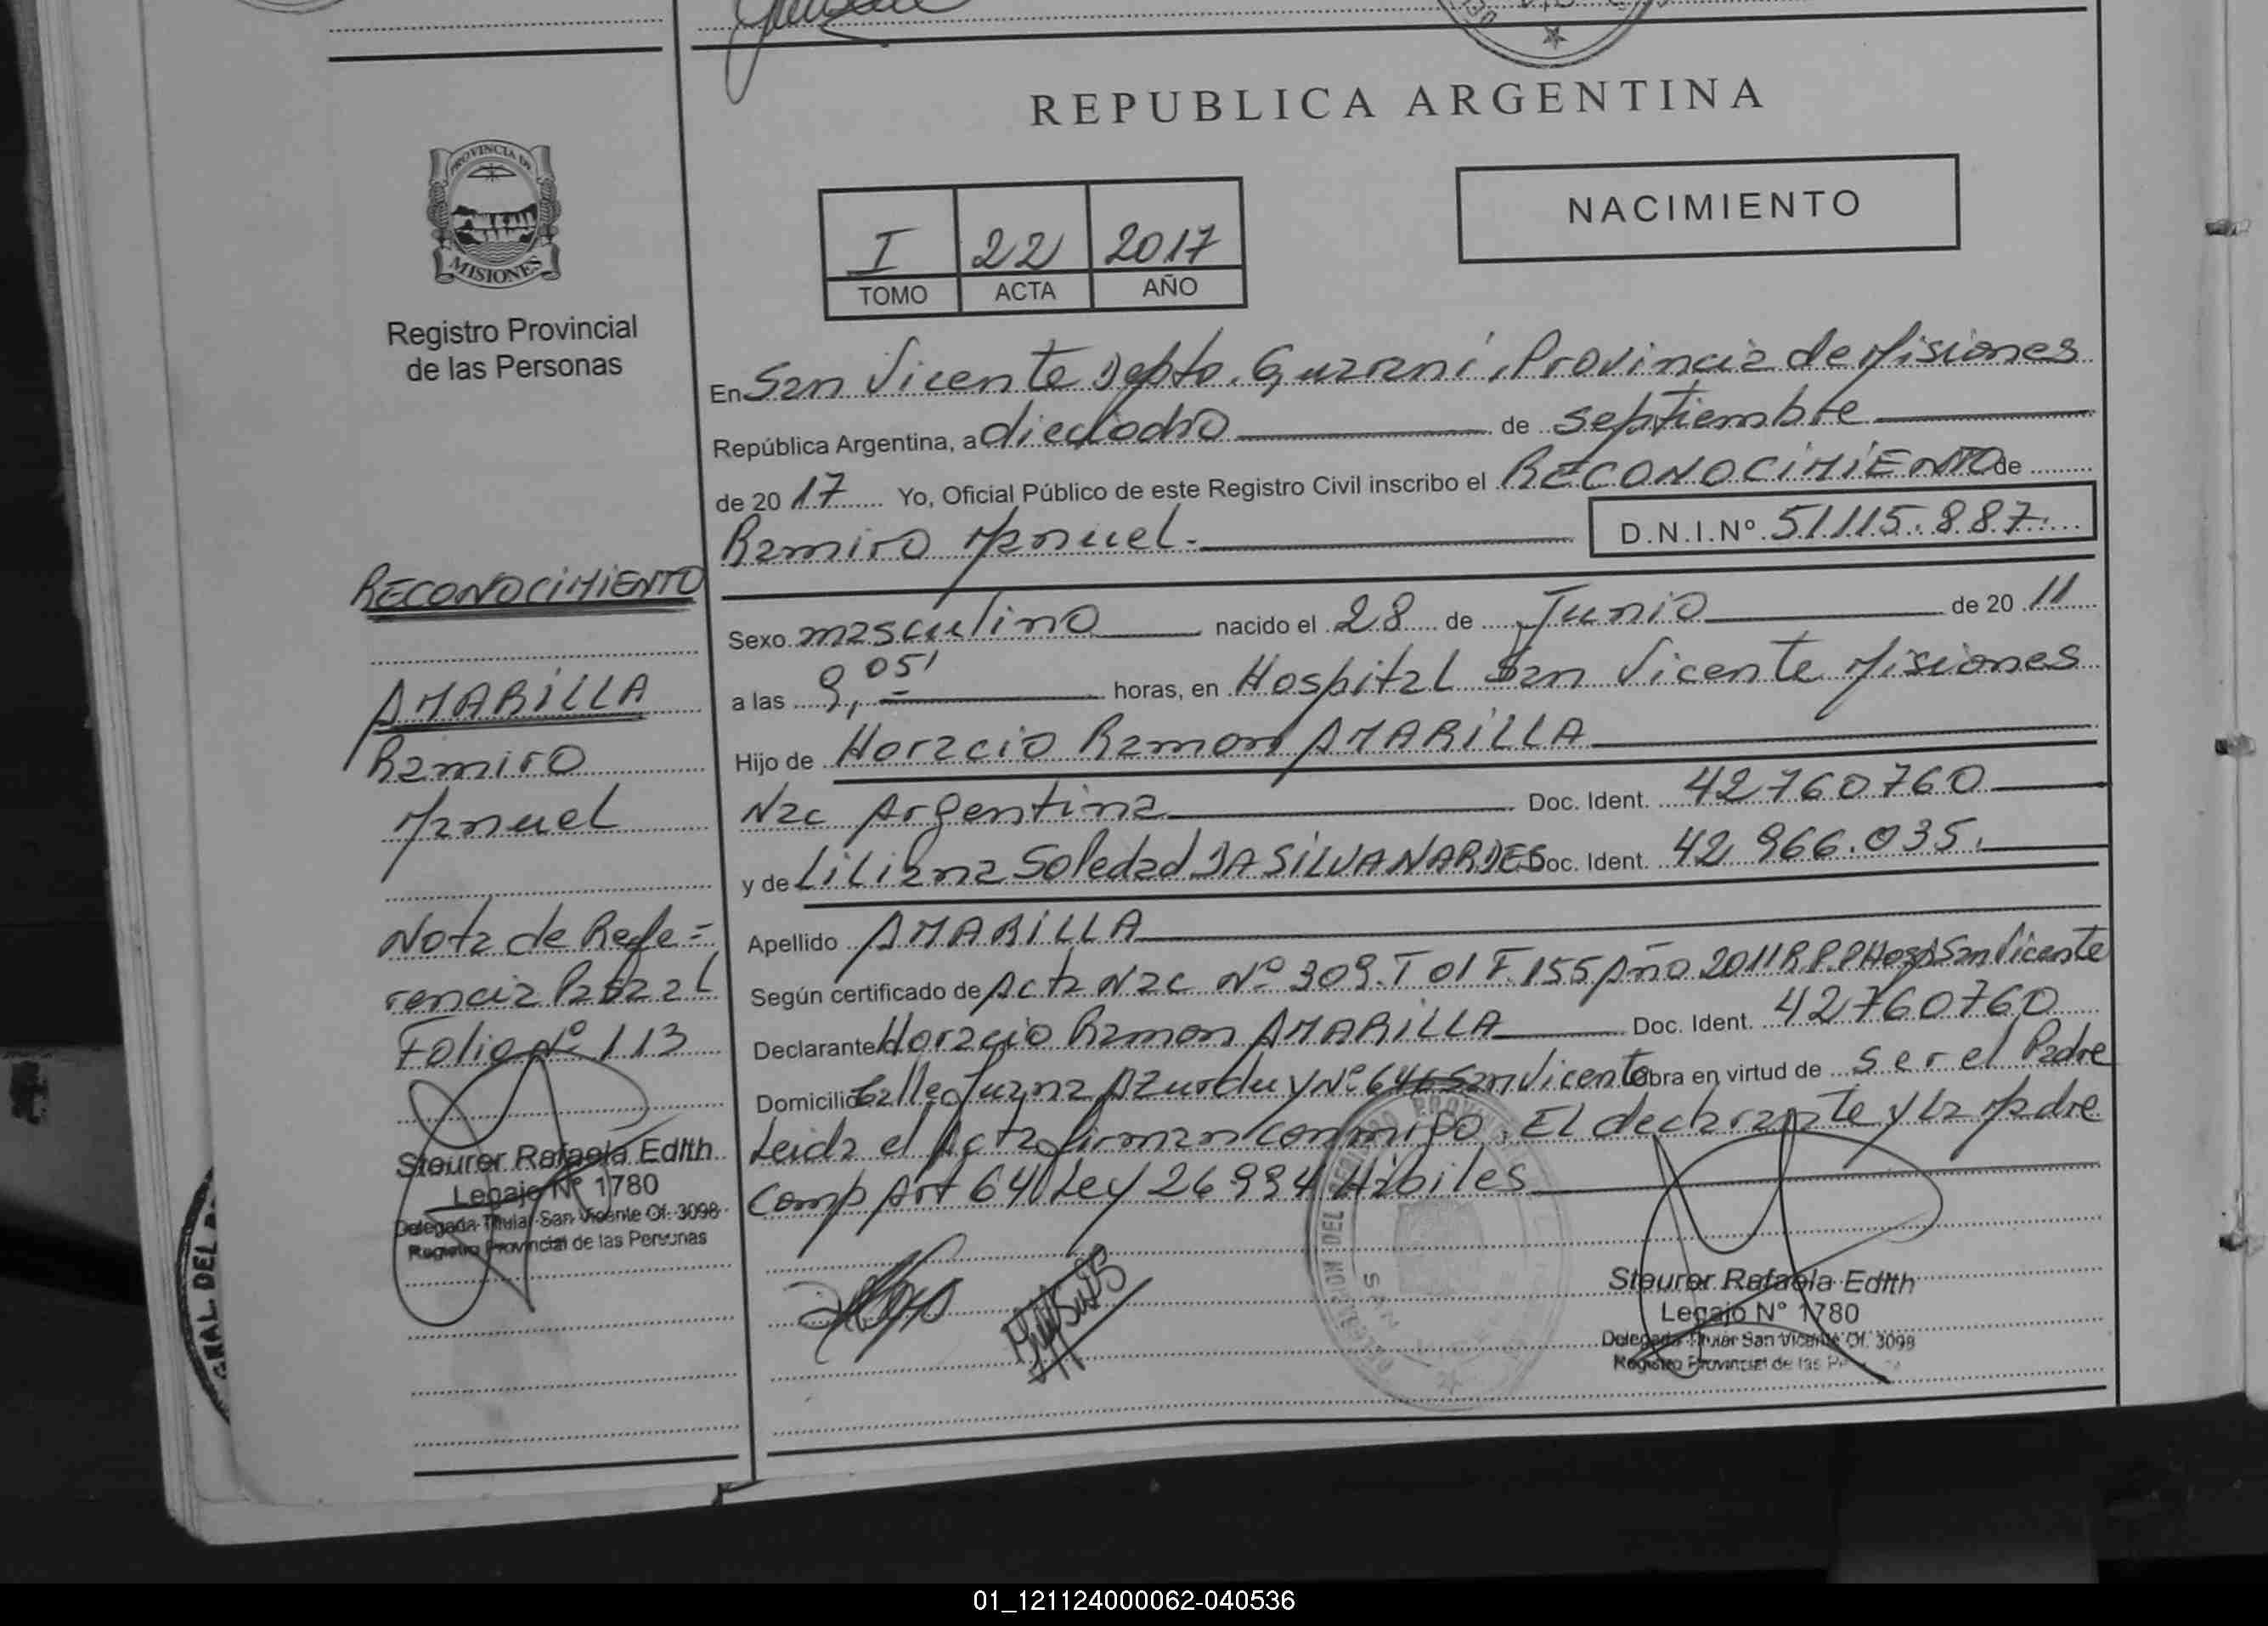 REPUBLICA ARGENTINA
PROVINCIA DE
MISIONES
Registro Provincial
de las Personas
NACIMIENTO
I 22 2017
TOMO ACTA AÑO
En San Vicente Depto. Guarani, Provincia de Misiones
República Argentina, a dieciocho de septiembre
de 20 17 Yo, Oficial Público de este Registro Civil inscribo el RECONOCIMIENTO de
Ramiro Manuel. D.N.I.Nº 51.115.887.
Sexo masculino nacido el 28 de Junio de 20 11
a las 9,05' horas, en Hospital San Vicente Misiones
Hijo de Horacio Ramon AMARILLA
Nac Argentina Doc. Ident. 42760760
y de Liliana Soledad DA SILVA NARDES Doc. Ident. 42.966.035.
Apellido AMARILLA
Según certificado de Acta Nac Nº 309. T 01 F. 155 Año 2011 R.P.P Hosp San Vicente
Declarante Horacio Ramon AMARILLA Doc. Ident. 42760760
Domicilio Calle Juana Azurduy Nº 646 San Vicente Obra en virtud de ser el Padre
Leida el Acta firman conmigo. El declarante y la Madre
Comp Art 64 Ley 26994 Habiles
RECONOCIMIENTO
AMARILLA
Ramiro
Manuel
Nota de Refe=
rencia
Folio Nº 113
Steurer Rafaela Edith
Legajo Nº 1780
Delegada Titular San Vicente Of. 3098
Registro Provincial de las Personas
Steurer Rafaela Edith
Legajo N° 1780
Delegada Titular San Vicente Of. 3098
Registro Provincial de las
01_121124000062-040536